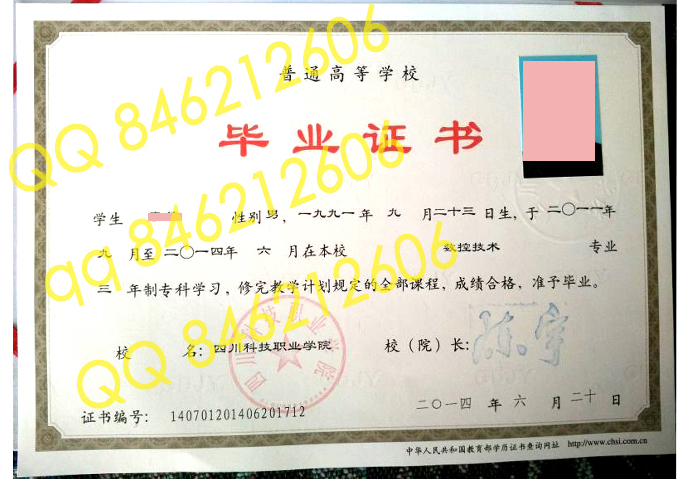 普通高等学校
毕业证书
学生 性别 男，一九九一年 九 月二十三日生，于 二〇一一年
九 月至 二〇一四年 六 月在本校 数控技术 专业
三 年制专科学习，修完教学计划规定的全部课程，成绩合格，准予毕业。
校 名：四川科技职业学院 校（院）长：
四川科技职业学院
证书编号： 140701201406201712
二〇一四 年 六 月 二十 日
中华人民共和国教育部学历证书查询网址 http://www.chsi.com.cn
QQ 846212606
qq 846212606
QQ 846212606